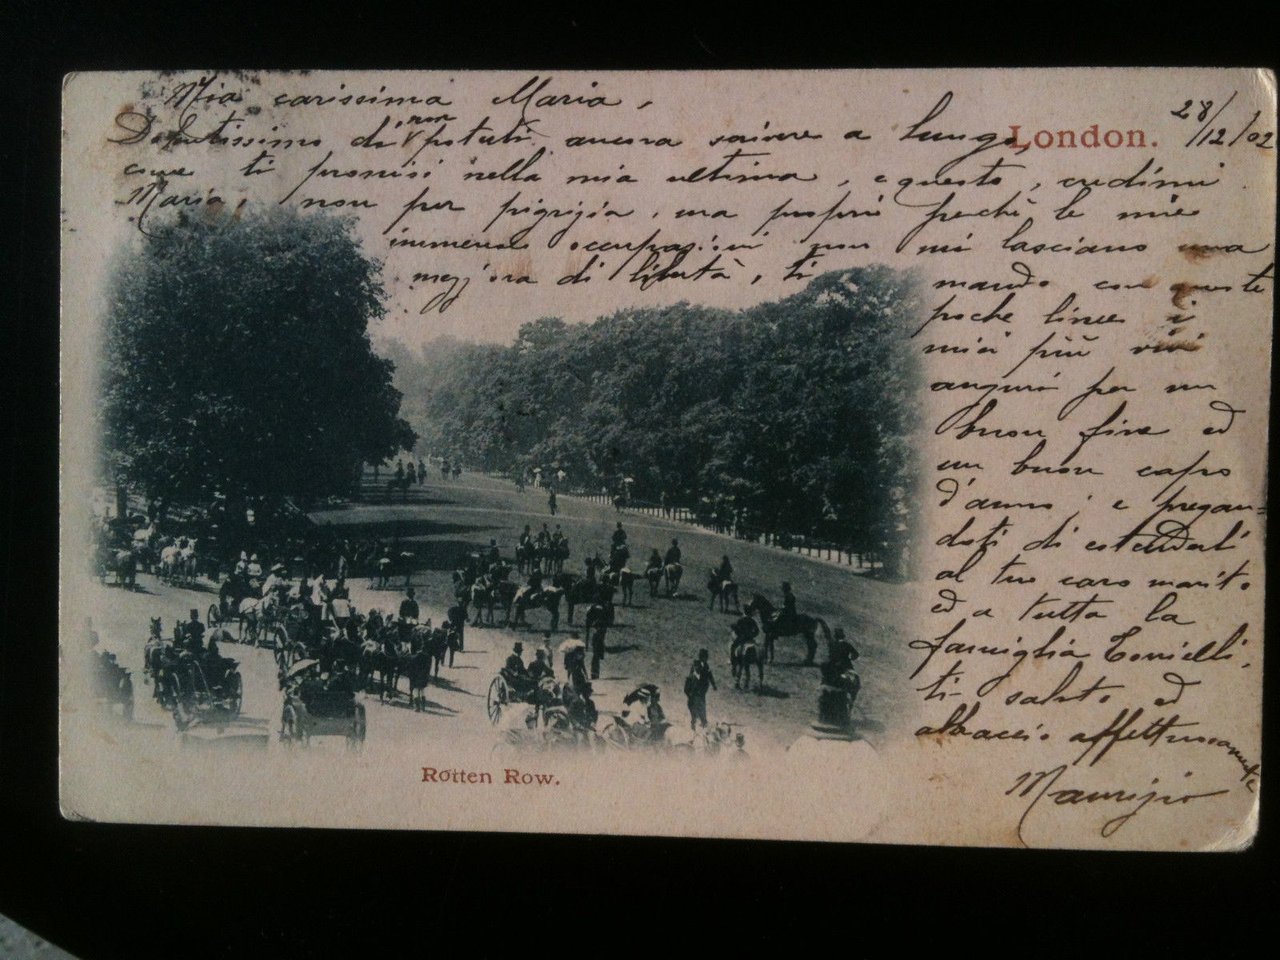 Mia carissima Maria,
28/12/02
London.
Dolentissimo di non poterti ancora scrivere a lungo,
come ti promisi nella mia ultima, e questo, credimi
Maria, non per pigrizia, ma proprio perchè le mie
immense occupazioni non mi lasciano una
mezz'ora di libertà, ti
mando con queste
poche linee i
miei più vivi
auguri per un
buon fine ed
un buon capo
d'anno; e pregan=
doti di estenderli
al tuo caro marito
ed a tutta la
famiglia
ti saluto ed
abbraccio affettuosamente
Maurizio
Rotten Row.